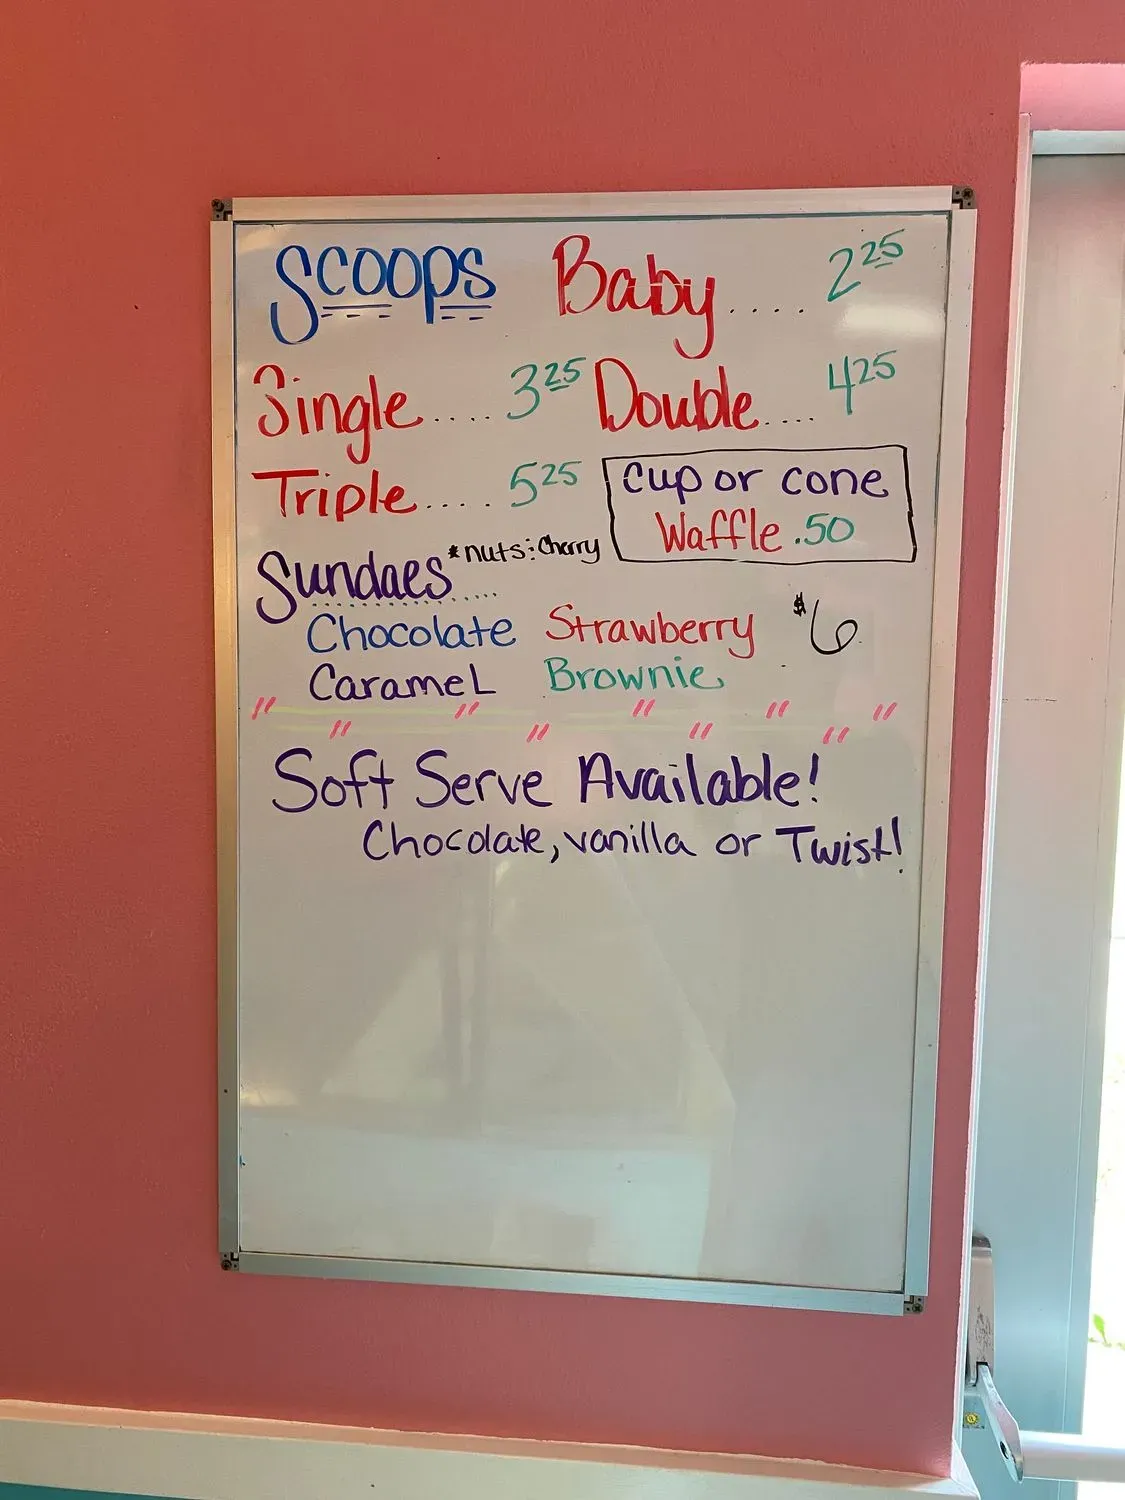 Scoops Baby .... 2 25
Single .... 3 25 Double .... 4 25
Triple .... 5 25 Cup or cone
Waffle .50
Sundaes *nuts : Cherry
Chocolate Strawberry $6
Caramel Brownie
Soft Serve Available!
Chocolate, vanilla or Twist!